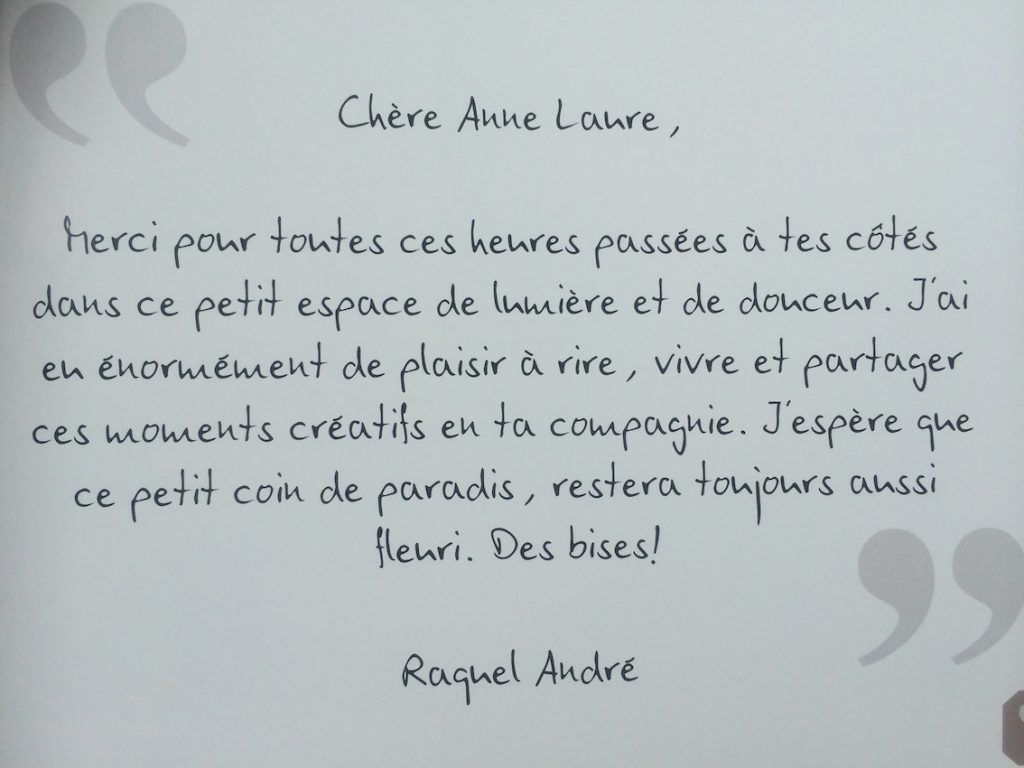 Chère Anne Laure,
Merci pour toutes ces heures passées à tes côtés
dans ce petit espace de lumière et de douceur. J'ai
eu énormément de plaisir à rire, vivre et partager
ces moments créatifs en ta compagnie. J'espère que
ce petit coin de paradis, restera toujours aussi
fleuri. Des bises!
Raquel André